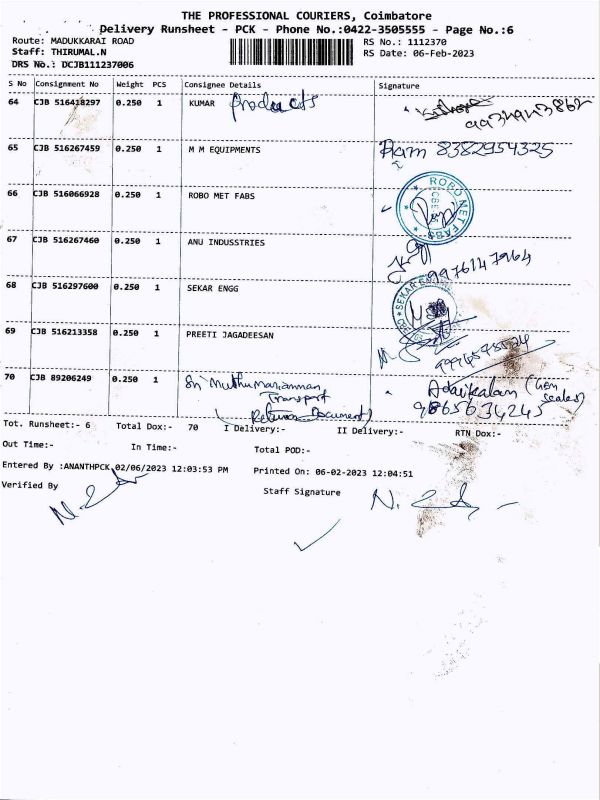 THE PROFESSIONAL COURIERS, Coimbatore
Delivery Runsheet - PCK - Phone No.:0422-3505555 - Page No.:6
Route: MADUKKARAI ROAD RS No.: 1112370
Staff: THIRUMAL.N RS Date: 06-Feb-2023
DRS No.: DCJB111237006
S No Consignment No Weight PCS Consignee Details Signature
64 CJB 516418297 0.250 1 KUMAR Products
65 CJB 516267459 0.250 1 M M EQUIPMENTS Ram 8382954325
66 CJB 516066928 0.250 1 ROBO MET FABS ROBO MET FABS CBE
67 CJB 516267460 0.250 1 ANU INDUSSTRIES 9976147964
68 CJB 516297600 0.250 1 SEKAR ENGG SEKAR
69 CJB 516213358 0.250 1 PREETI JAGADEESAN
70 CJB 89206249 0.250 1 Sri Muthumariamman Adaikalam
Transport
(Return Document) 9865634245
Tot. Runsheet:- 6 Total Dox:- 70 I Delivery:- II Delivery:- RTN Dox:-
Out Time:- In Time:- Total POD:-
Entered By :ANANTHPCK 02/06/2023 12:03:53 PM Printed On: 06-02-2023 12:04:51
Verified By Staff Signature